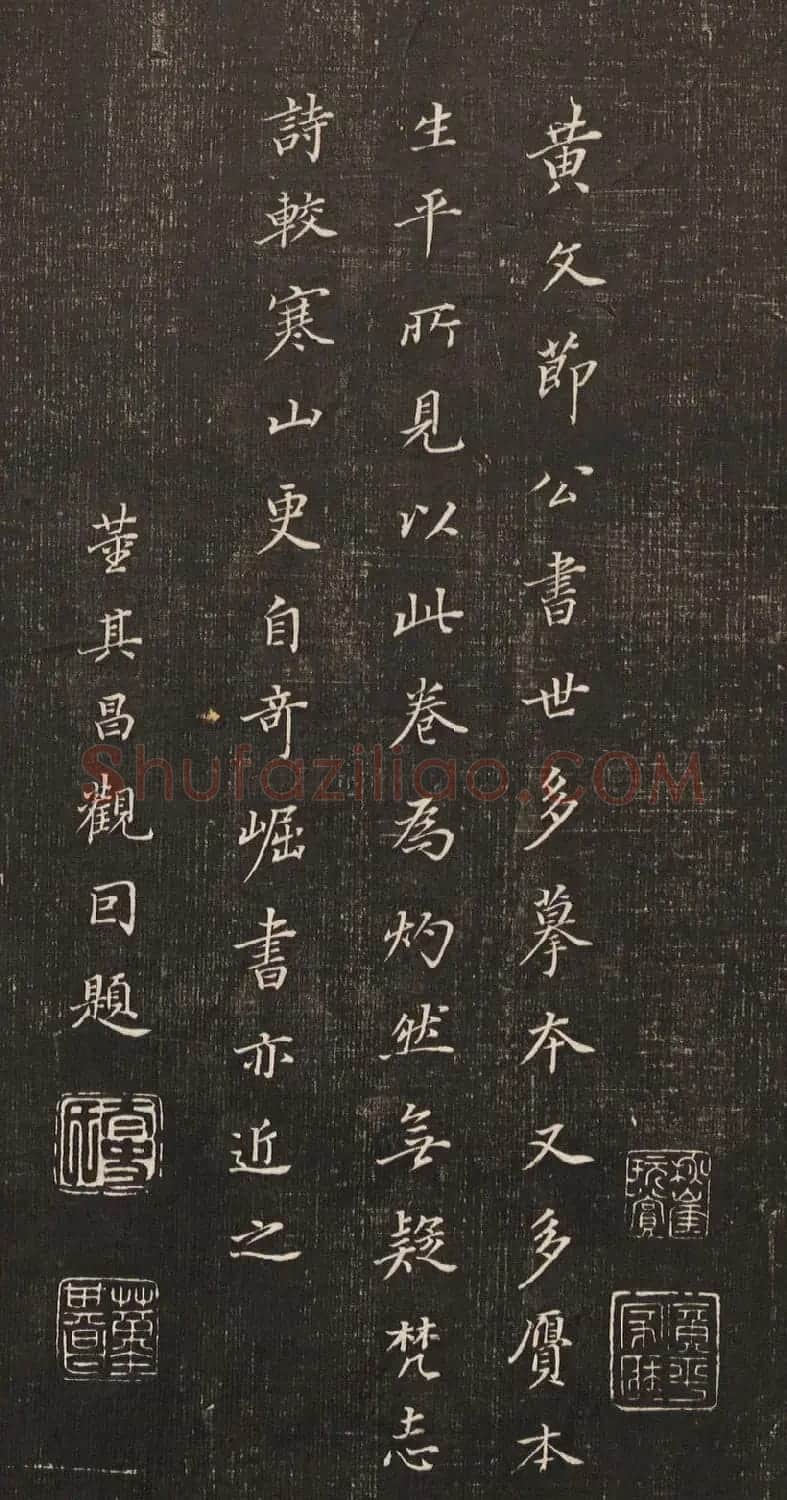 黄文節公書世多摹本又多贋本
生平所見以此卷為灼然無疑梵志
詩較寒山更自奇崛書亦近之
董其昌觀回題
秋崖玩賞
Shufaziliao.COM